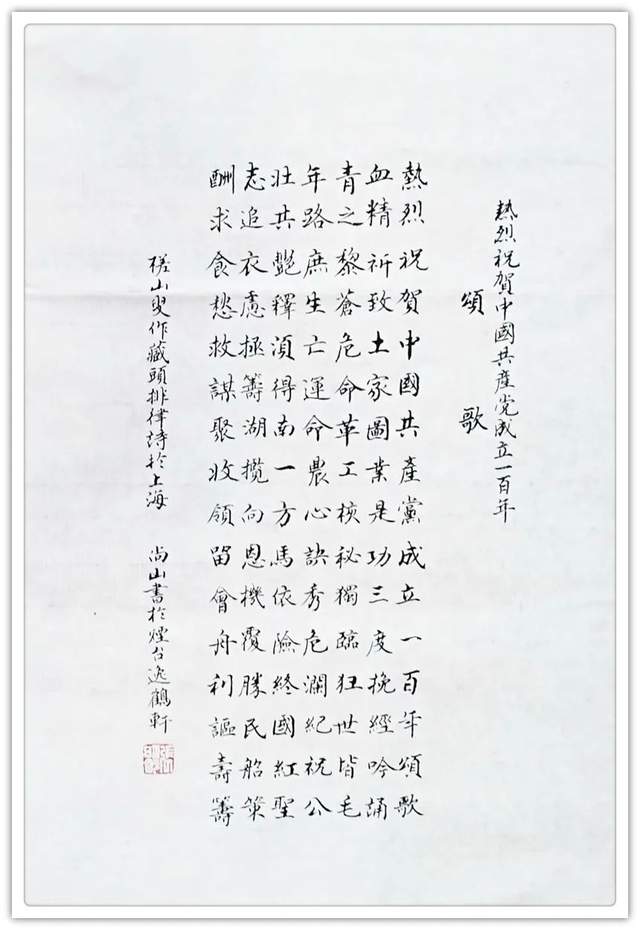 熱烈祝賀中國共產党成立一百年
頌歌
熱烈祝賀中國共產黨成立一百年頌歌
血精祈致土家圖業是功三度挽經吟誦
青之黎蒼危命革工核秘獨臨狂世皆毛
年路庶生亡運命農心訣秀危瀾紀祝公
壯共艷釋湏得南一方馬依險終國紅聖
志追衣慮極籌湖攬向恩機覆勝民船策
酬求食愁救謀聚收領留會舟利謳壽籌
槎山叟作藏頭排律詩於上海 尚山書於煙台逸鶴軒